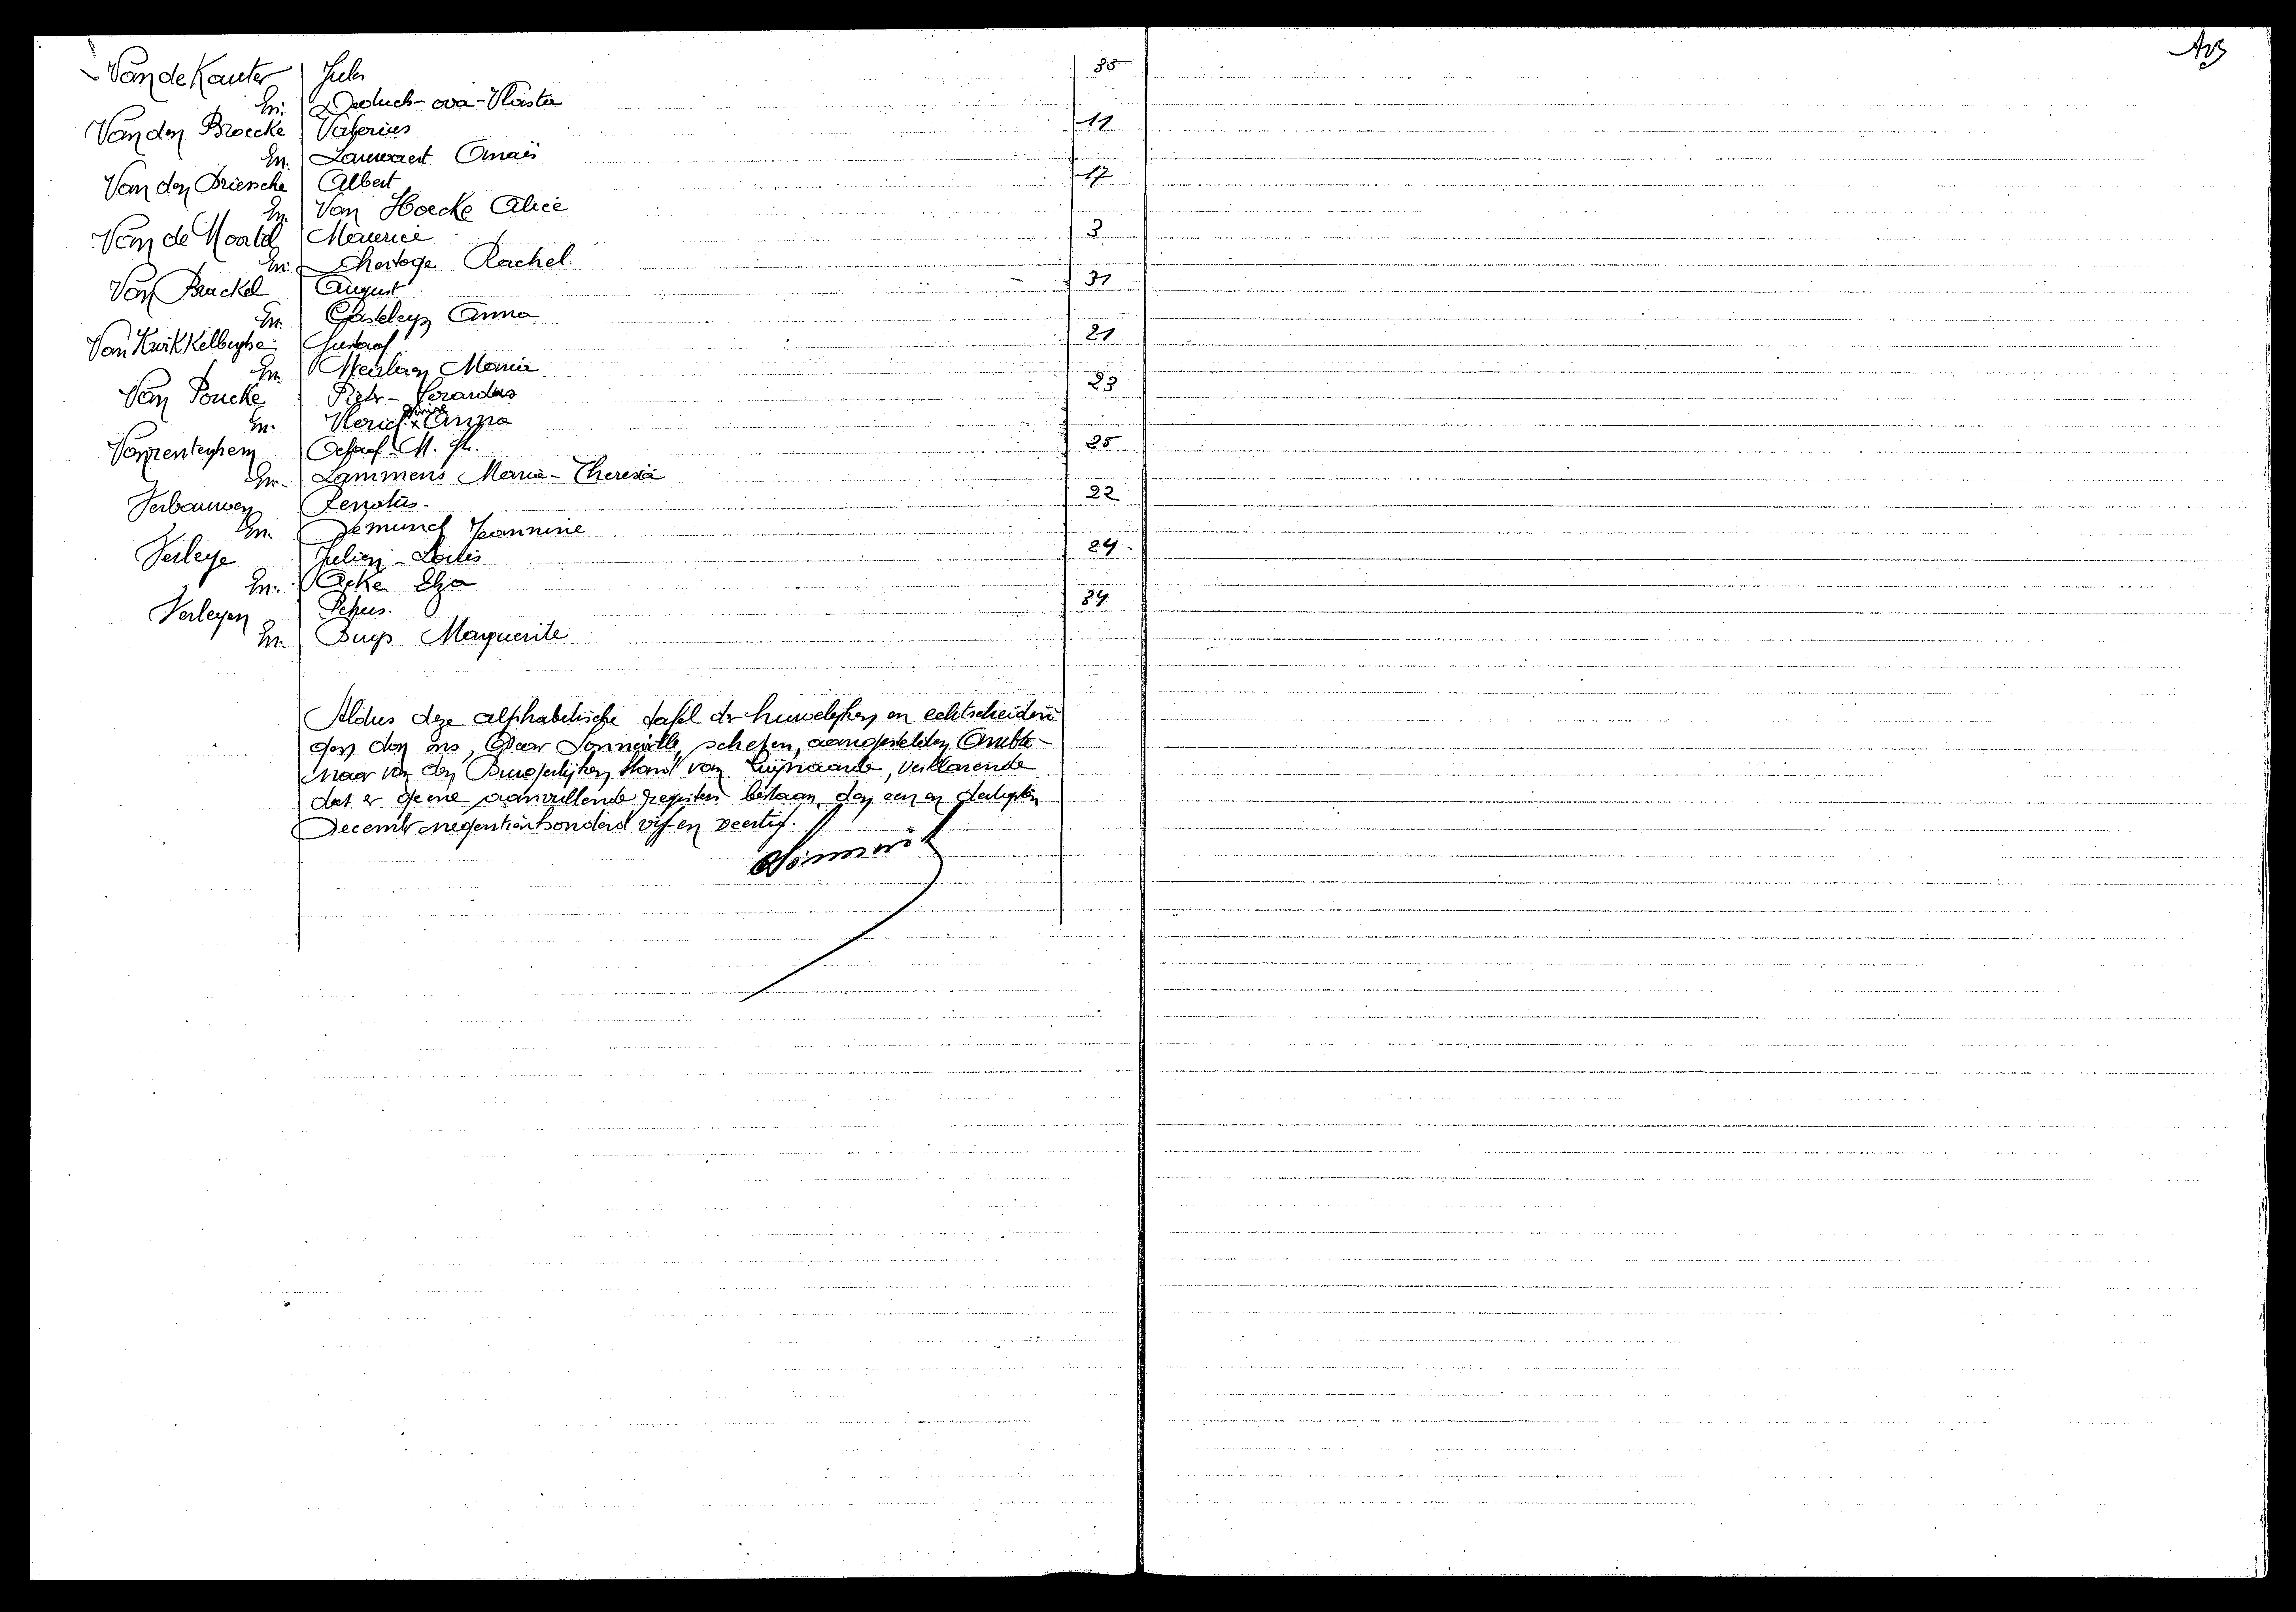 Van de Kauter Jules 35
En. Vlasta
Van den Broecke Valerius 11
En. Lauwaert Anaïs
Van den Driessche Albert 17
En. Van Hoecke Alice
Van de Maurice 3
En. Dhertoge Rachel.
Van Brackel August 31
En. Gisteleyn Anna
Van Kwikkelberghe Gustaaf 21
En. Marie
Van Poucke Pieter - Gerardus 23
En. Vlerick Anna
Vanrenterghem Octaaf M. 25
En. Lammens Marie - Theresia
Verbauwen Renatus. 22
En. Demunck Jeannine
Verleye Julien - Louis 24.
En. Acke Elza
Verleyen Petrus. 34
En. Buys Marguerite
Aldus deze alphabetische tafel der huwelijken en echtscheidin
gen door ons, Oscar Sonneville, schepen, aangestelden Ambte-
naar van den Burgerlijken Stand van Zwijnaarde, verklarende
dat er geene aanvullende registers bestaan, den een en dertigsten
December negentienhonderd vijf en veertig.